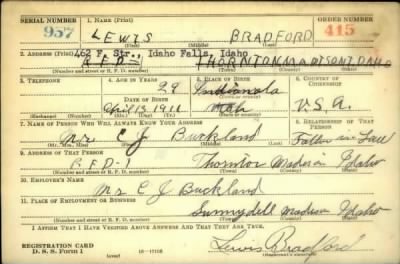 SERIAL NUMBER 1. NAME (Print) ORDER NUMBER
957 LEWIS BRADFORD 415
(First) (Middle) (Last)
2. ADDRESS (Print) 462 F. Str., Idaho Falls, Idaho
R.F.D-1 THORNTON MADISON IDAHO
(Number and street or R. F. D. number) (Town) (County) (State)
3. TELEPHONE 4. AGE IN YEARS 5. PLACE OF BIRTH 6. COUNTRY OF CITIZENSHIP
29 Indianola
DATE OF BIRTH
1911 Utah U.S.A.
(Exchange) (Number) (Mo.) (Day) (Yr.) (State or country)
7. NAME OF PERSON WHO WILL ALWAYS KNOW YOUR ADDRESS 8. RELATIONSHIP OF THAT PERSON
Mr C J Buckland Father in Law
(Mr., Mrs., Miss) (First) (Middle) (Last)
9. ADDRESS OF THAT PERSON
R.F.D-1 Thornton Madison Idaho
(Number and street or R. F. D. number) (Town) (County) (State)
10. EMPLOYER'S NAME
Mr C J Buckland
11. PLACE OF EMPLOYMENT OR BUSINESS
Sunnydell Madison Idaho
(Number and street or R. F. D. number) (Town) (County) (State)
I AFFIRM THAT I HAVE VERIFIED ABOVE ANSWERS AND THAT THEY ARE TRUE.
REGISTRATION CARD
D. S. S. FORM 1 (over) Lewis Bradford